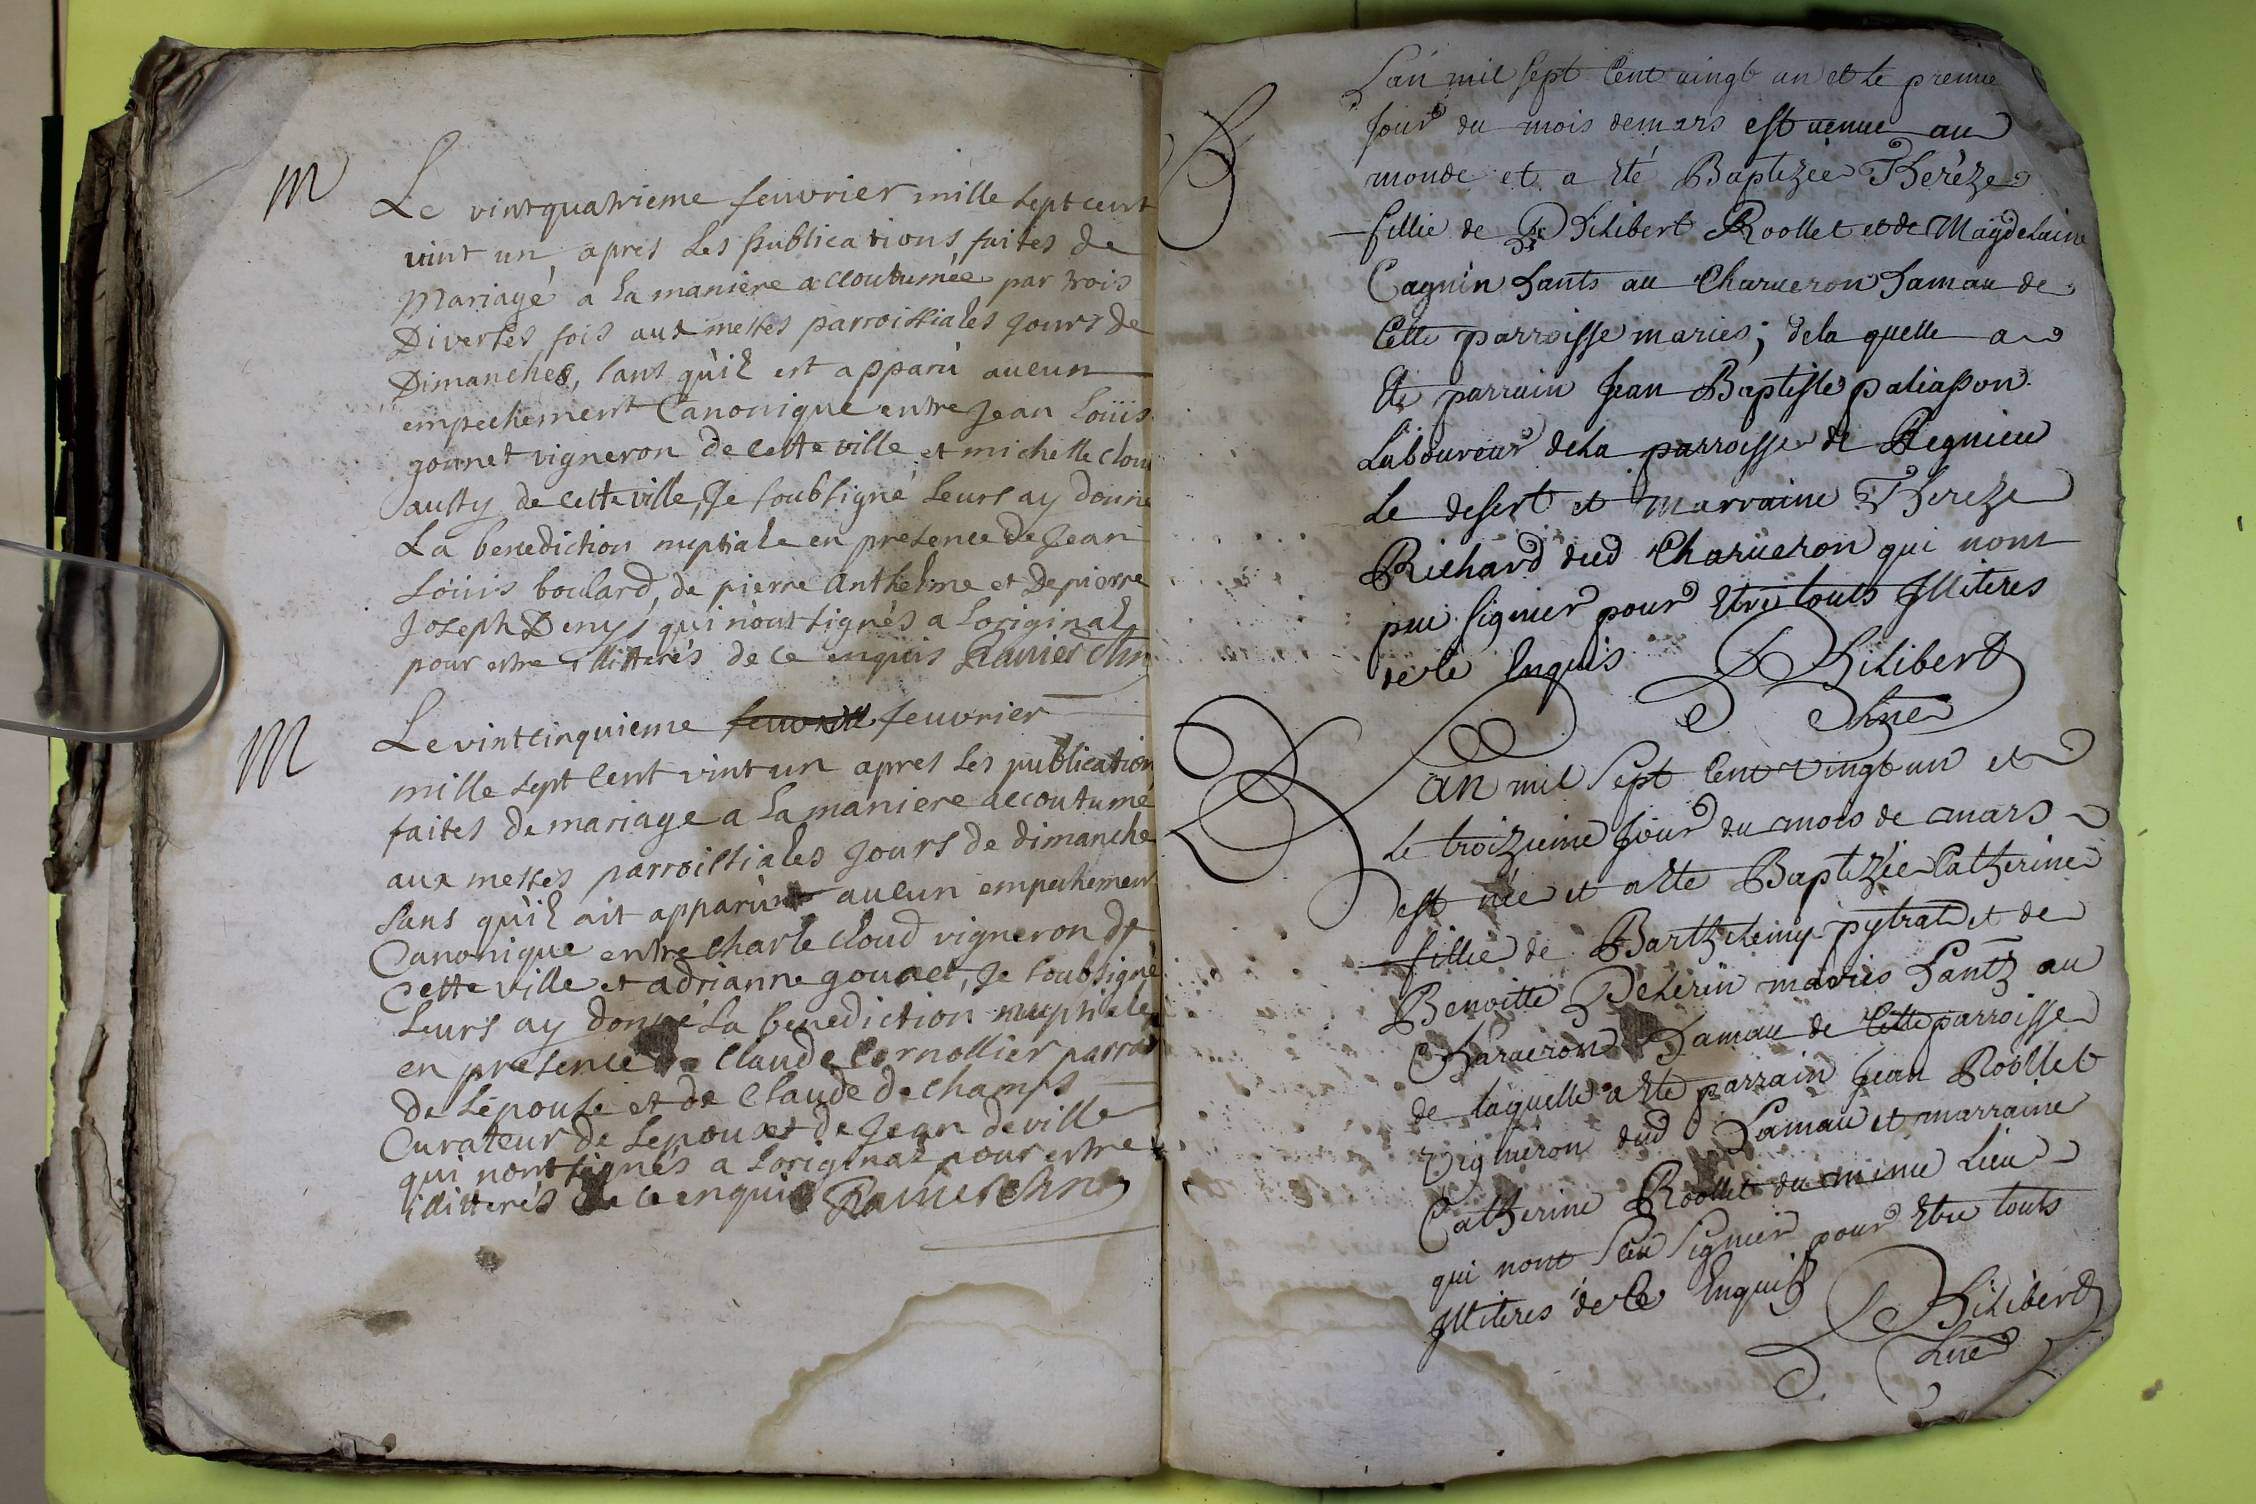 M
Le vintquatrieme feuvrier mille sept cent
vint un, apres les publications faites de
Mariage a la maniere accoutumée par trois
Diverses fois aux messes parroissiales jours de
Dimanches, sans qu'il est apparu aucun
empechement Canonique entre Jean Loüis
gonnet vigneron de cette ville et michelle clou
de cette ville, Je soubsigné leurs ay donné
La benediction nuptiale en presence de Jean
Loüis boulard, de pierre Anthelme et De pierre
Joseph Denys, qui n'ont signés a L'original
pour estre illitterés de ce enquis Ravier
M
Le vintcinquieme feuvrier
mille sept cent vint un apres les publication
faites de mariage a la maniere accoutumé
aux messes parroissiales jours de dimanche
sans qu'il ait apparu aucun empechement
Canonique entre Charle Cloud vigneron de
Cette ville et adrianne gounet, Je soubsigné
Leurs ay donné La benediction nuptiale
en presence de Claude Cornollier parra
de L'epouse et de Claude de champs
Curateur de Lepoux et de Jean deville
qui nont signés a L'original pour estre
illitterés de ce enquis Ravier
B
L'an mil sept Cent vingt un et le premie
Jour du mois de mars est venue au
monde et a eté Baptizée Therèze
fillie de Philibert Roollet et de Magdelaine
Cagnin hants au Charveron hamau de
Cette parroisse mariés; de la quelle a
eté parrain Jean Baptiste paliasson
Laboureur de la parroisse de Regnieu
Le desert et marraine Thereze
Richard dud Charüeron qui nont
pui signier pour etre touts Illiteres
de ce Enquis Philibert
B
L'an mil sept Cent vingt un et
le troizieme Jour du mois de mars
est née et a ete Baptizée Catherine
fillie de Barthelemy pytrat et de
Benoitte Pelerin mariés hantz au
Charveron hamau de Cette parroisse
de laquelle a ete parrain Jean Roollet
Vigneron dud hamau et marraine
Catherine Roollet du meme Lieu
qui nont sceu signier pour etre touts
Illiteres de ce Enquis Philibert